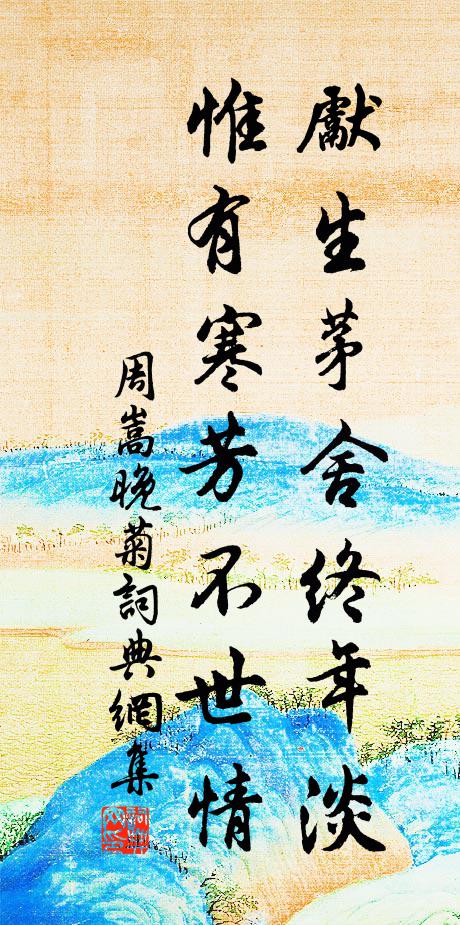 獻生茅舍終年淡
惟有寒芳不世情
周嵩晚菊詞典網集